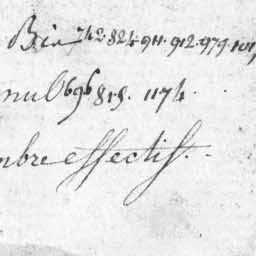 Bia 742. 824. 911. 912. 979. 101
nul 696 818. 1174.
mbre effectif.